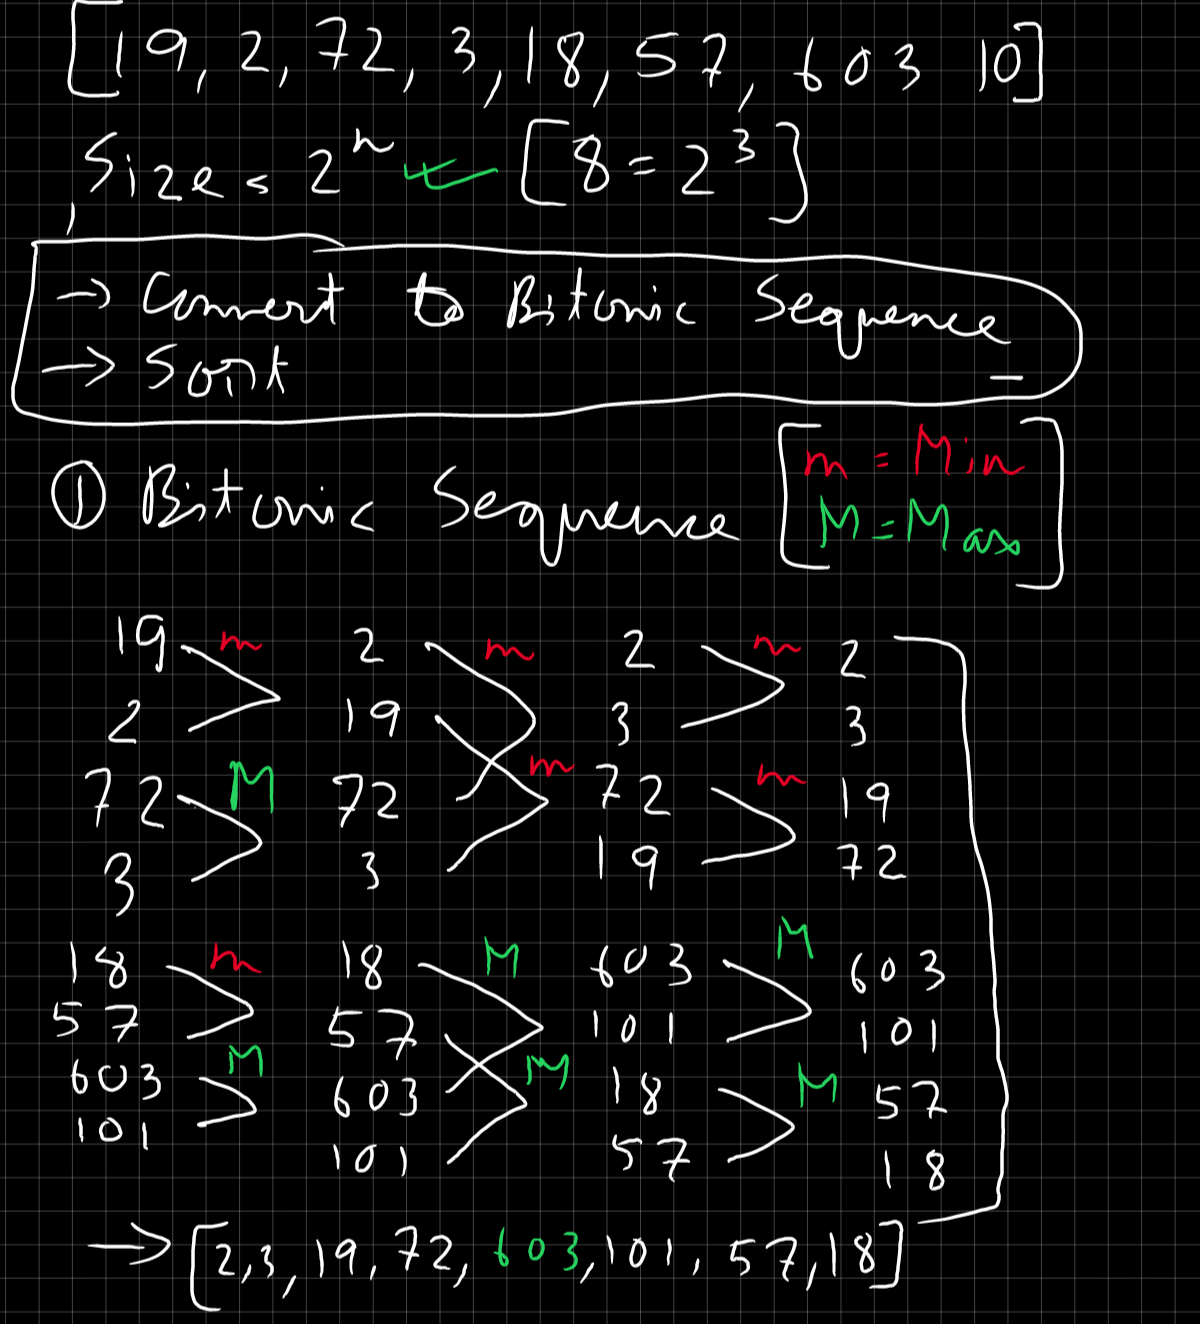 [19, 2, 72, 3, 18, 57, 603 10]
Size = 2^n [8 = 2^3]
→ Convert to Bitonic Sequence
→ Sort
① Bitonic Sequence
m = Min
M = Max
19 m 2 m 2 m 2
2 19 3 3
72 M 72 m 72 m 19
3 3 19 72
18 m 18 M 603 M 603
57 57 101 101
603 M 603 M 18 M 57
101 101 57 18
→ [2,3, 19, 72, 603, 101, 57, 18]